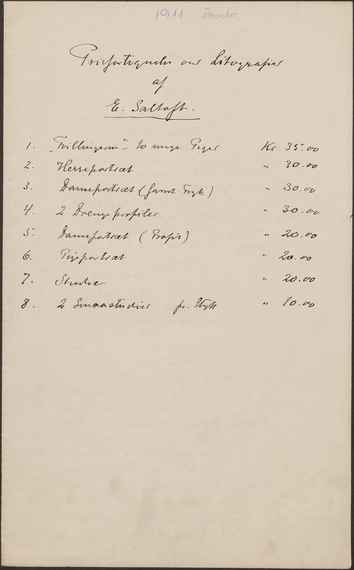 1911
Prisfortegnelse over Litografier
af
E. Saltoft.
1. "Tvillingerne" to unge Piger Kr. 35.00
2. Herreportræt " 30.00
3. Dameportræt (samt Tryk) " 30.00
4. 2 Drengeprofiler " 30.00
5. Dameportræt (Profil) " 20.00
6. Pigeportræt " 20.00
7. Studie " 20.00
8. 2 Smaastudier pr. Stk " 10.00